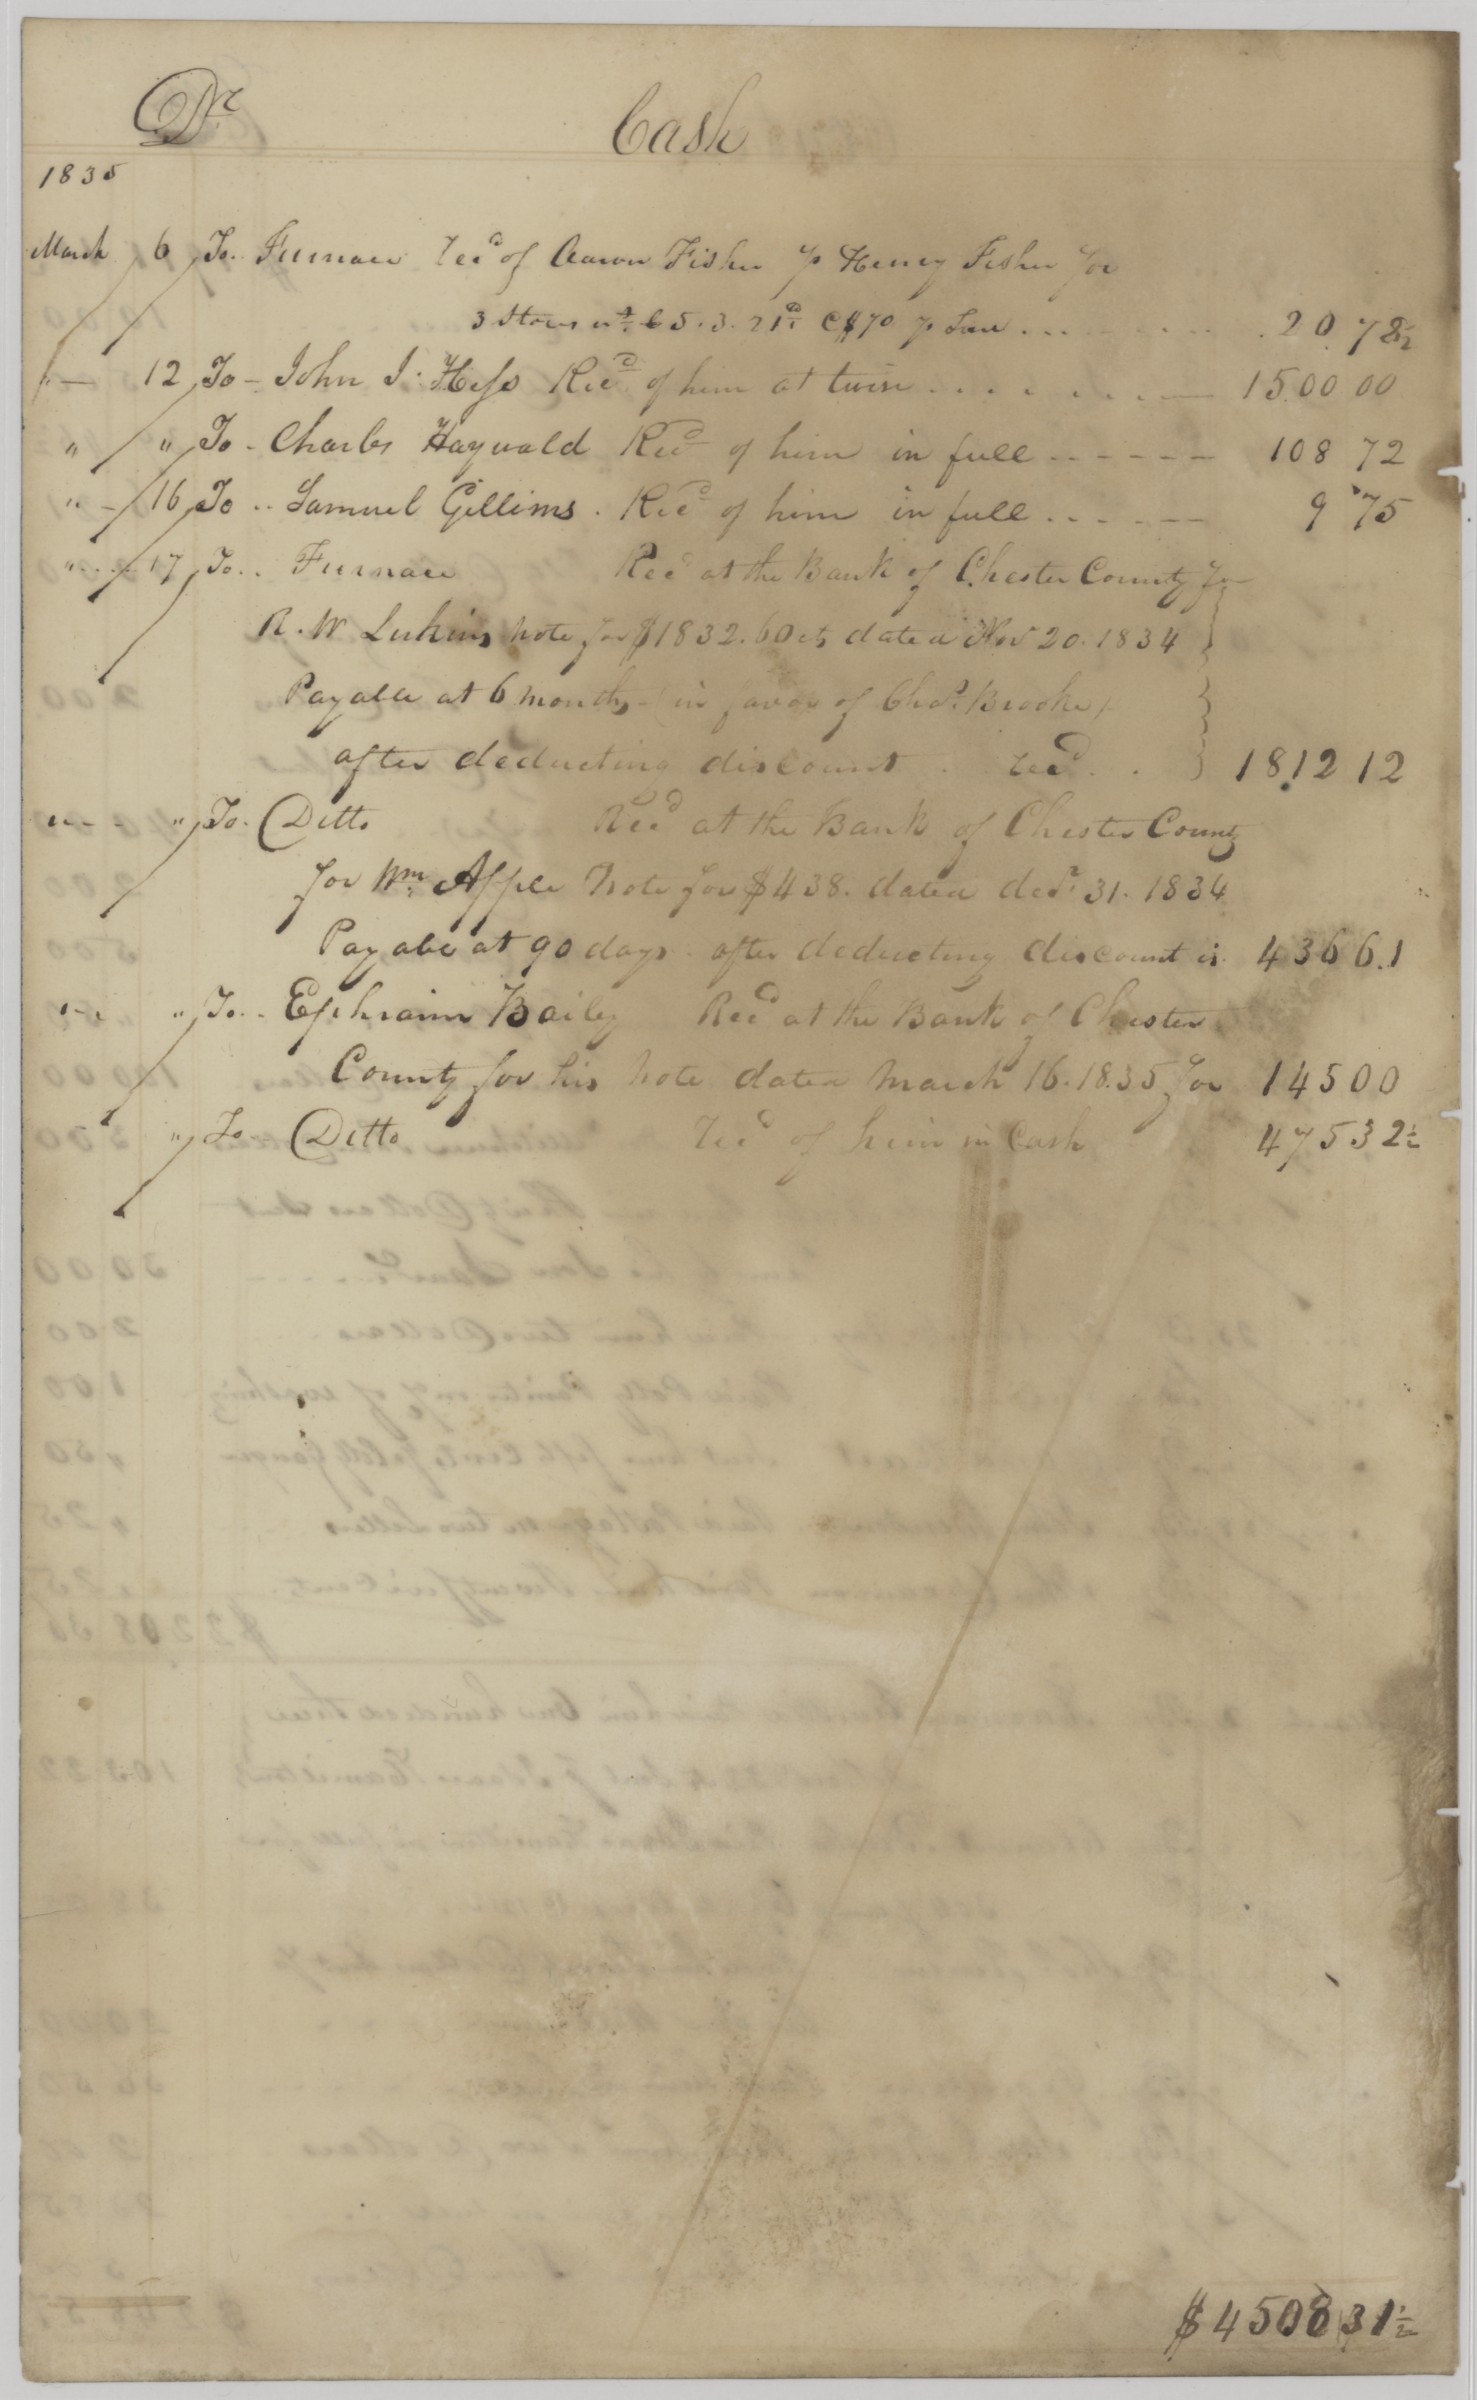 Dr Cash
1835
March 6 To. Furnace Recd of Aaron Fisher p Henry Fisher for
3 Stoves wt 5.3.21 @ $70 p 20 78½
" — 12 To - John J. Hess Recd of him at twise . . . . . . . 1500 00
" " To - Charles Haywald Recd of him in full - - - - - - 108 72
" - 16 To .. Samuel Gillims . Recd of him in full . . . . - - 9 75
" . . . . 17 To .. Furnace Recd at the Bank of Chester County for
R. W Lukins note for $1832.60 cts dated Nov 20. 1834
Payable at 6 months (in favor of Chas. Brooke)
after deducting discount . . recd . . 1812 12
" - - " To. Ditto Recd at the Bank of Chester County
for Wm. Apple note for $438. dated decr. 31. 1834
Payabe at 90 days. after deducting discount is. 436 61
" - . " To. . Ephraim Baily Recd at the Bank of Chester
County for his note dated march 16. 1835 for 145 00
" To Ditto Recd of him in Cash 475 32½
$4508 31½